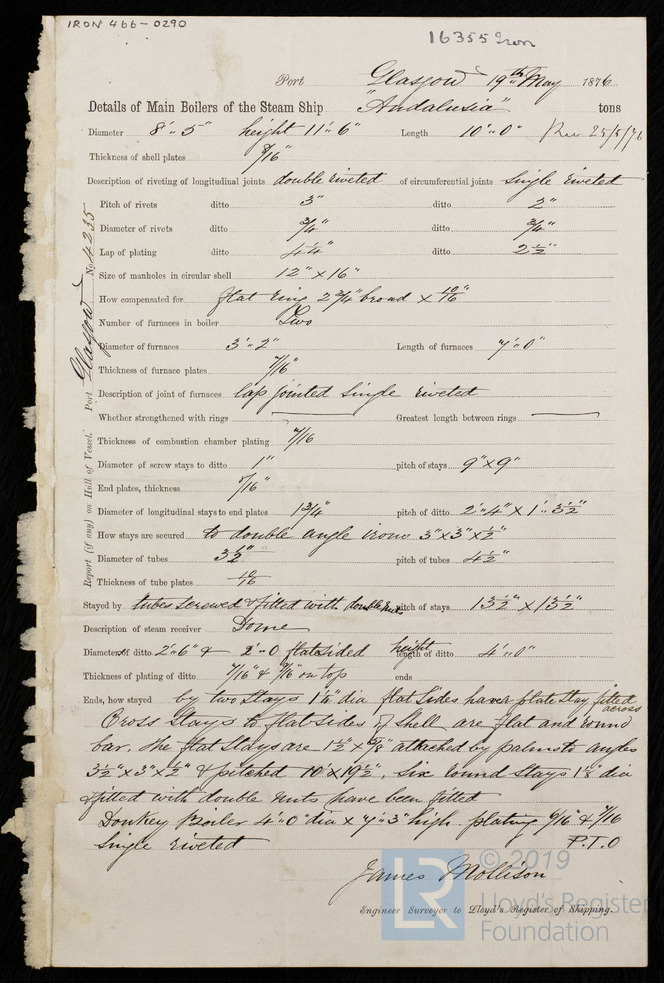 IRON 466-0290
16355 Iron
Port Glasgow 19th May 1876
Details of Main Boilers of the Steam Ship "Andalusia" tons
Diameter 8'..5" height 11'..6" Length 10'..0" Rec 25/5/76
Thickness of shell plates 9/16"
Description of riveting of longitudinal joints double riveted of circumferential joints Single riveted
Pitch of rivets ditto 3" ditto 2"
Diameter of rivets ditto 3/4" ditto 3/4"
Lap of plating ditto 4 1/4" ditto 2 1/2"
Size of manholes in circular shell 12" x 16"
How compensated for flat ring 2 3/4" broad x 10/16"
Number of furnaces in boiler Two
Diameter of furnaces 3'..2" Length of furnaces 7'..0"
Thickness of furnace plates 7/16"
Description of joint of furnaces lap jointed Single riveted
Whether strengthened with rings Greatest length between rings
Thickness of combustion chamber plating 7/16
Diameter of screw stays to ditto 1" pitch of stays 9" x 9"
End plates, thickness 9/16"
Diameter of longitudinal stays to end plates 1 3/4" pitch of ditto 2'..4" x 1'..3 1/2"
How stays are secured to double angle irons 3" x 3" x 1/2"
Diameter of tubes 3 1/2" pitch of tubes 4 1/2"
Thickness of tube plates 10/16
Stayed by tubes screwed & fitted with double nuts pitch of stays 13 1/2" x 13 1/2"
Description of steam receiver Dome
Diameter of ditto 2'..6" & 2'..0 flat sided height length of ditto 4'..0"
Thickness of plating of ditto 7/16" & 9/16 on top ends
Ends, how stayed by two Stays 1 1/8" dia flat Sides have plate Stay fitted across
Cross Stays to flat sides of Shell are flat and round
bar. the flat Stays are 1 1/2" x 5/8" attached by palms to angles
3 1/2" x 3" x 1/2" & pitched 10" x 19 1/2". Six round Stays 1 1/8" dia
& fitted with double nuts have been fitted
Donkey Boiler 4'..0" dia x 7'..3" high. plating 6/16" & 7/16
Single riveted P.T.O
James Mollison
Engineer Surveyor to Lloyd's Register of Shipping.
Report (if any) on Hull of Vessel. Port Glasgow No. 4235
LR © 2019
Lloyd's Register
Foundation